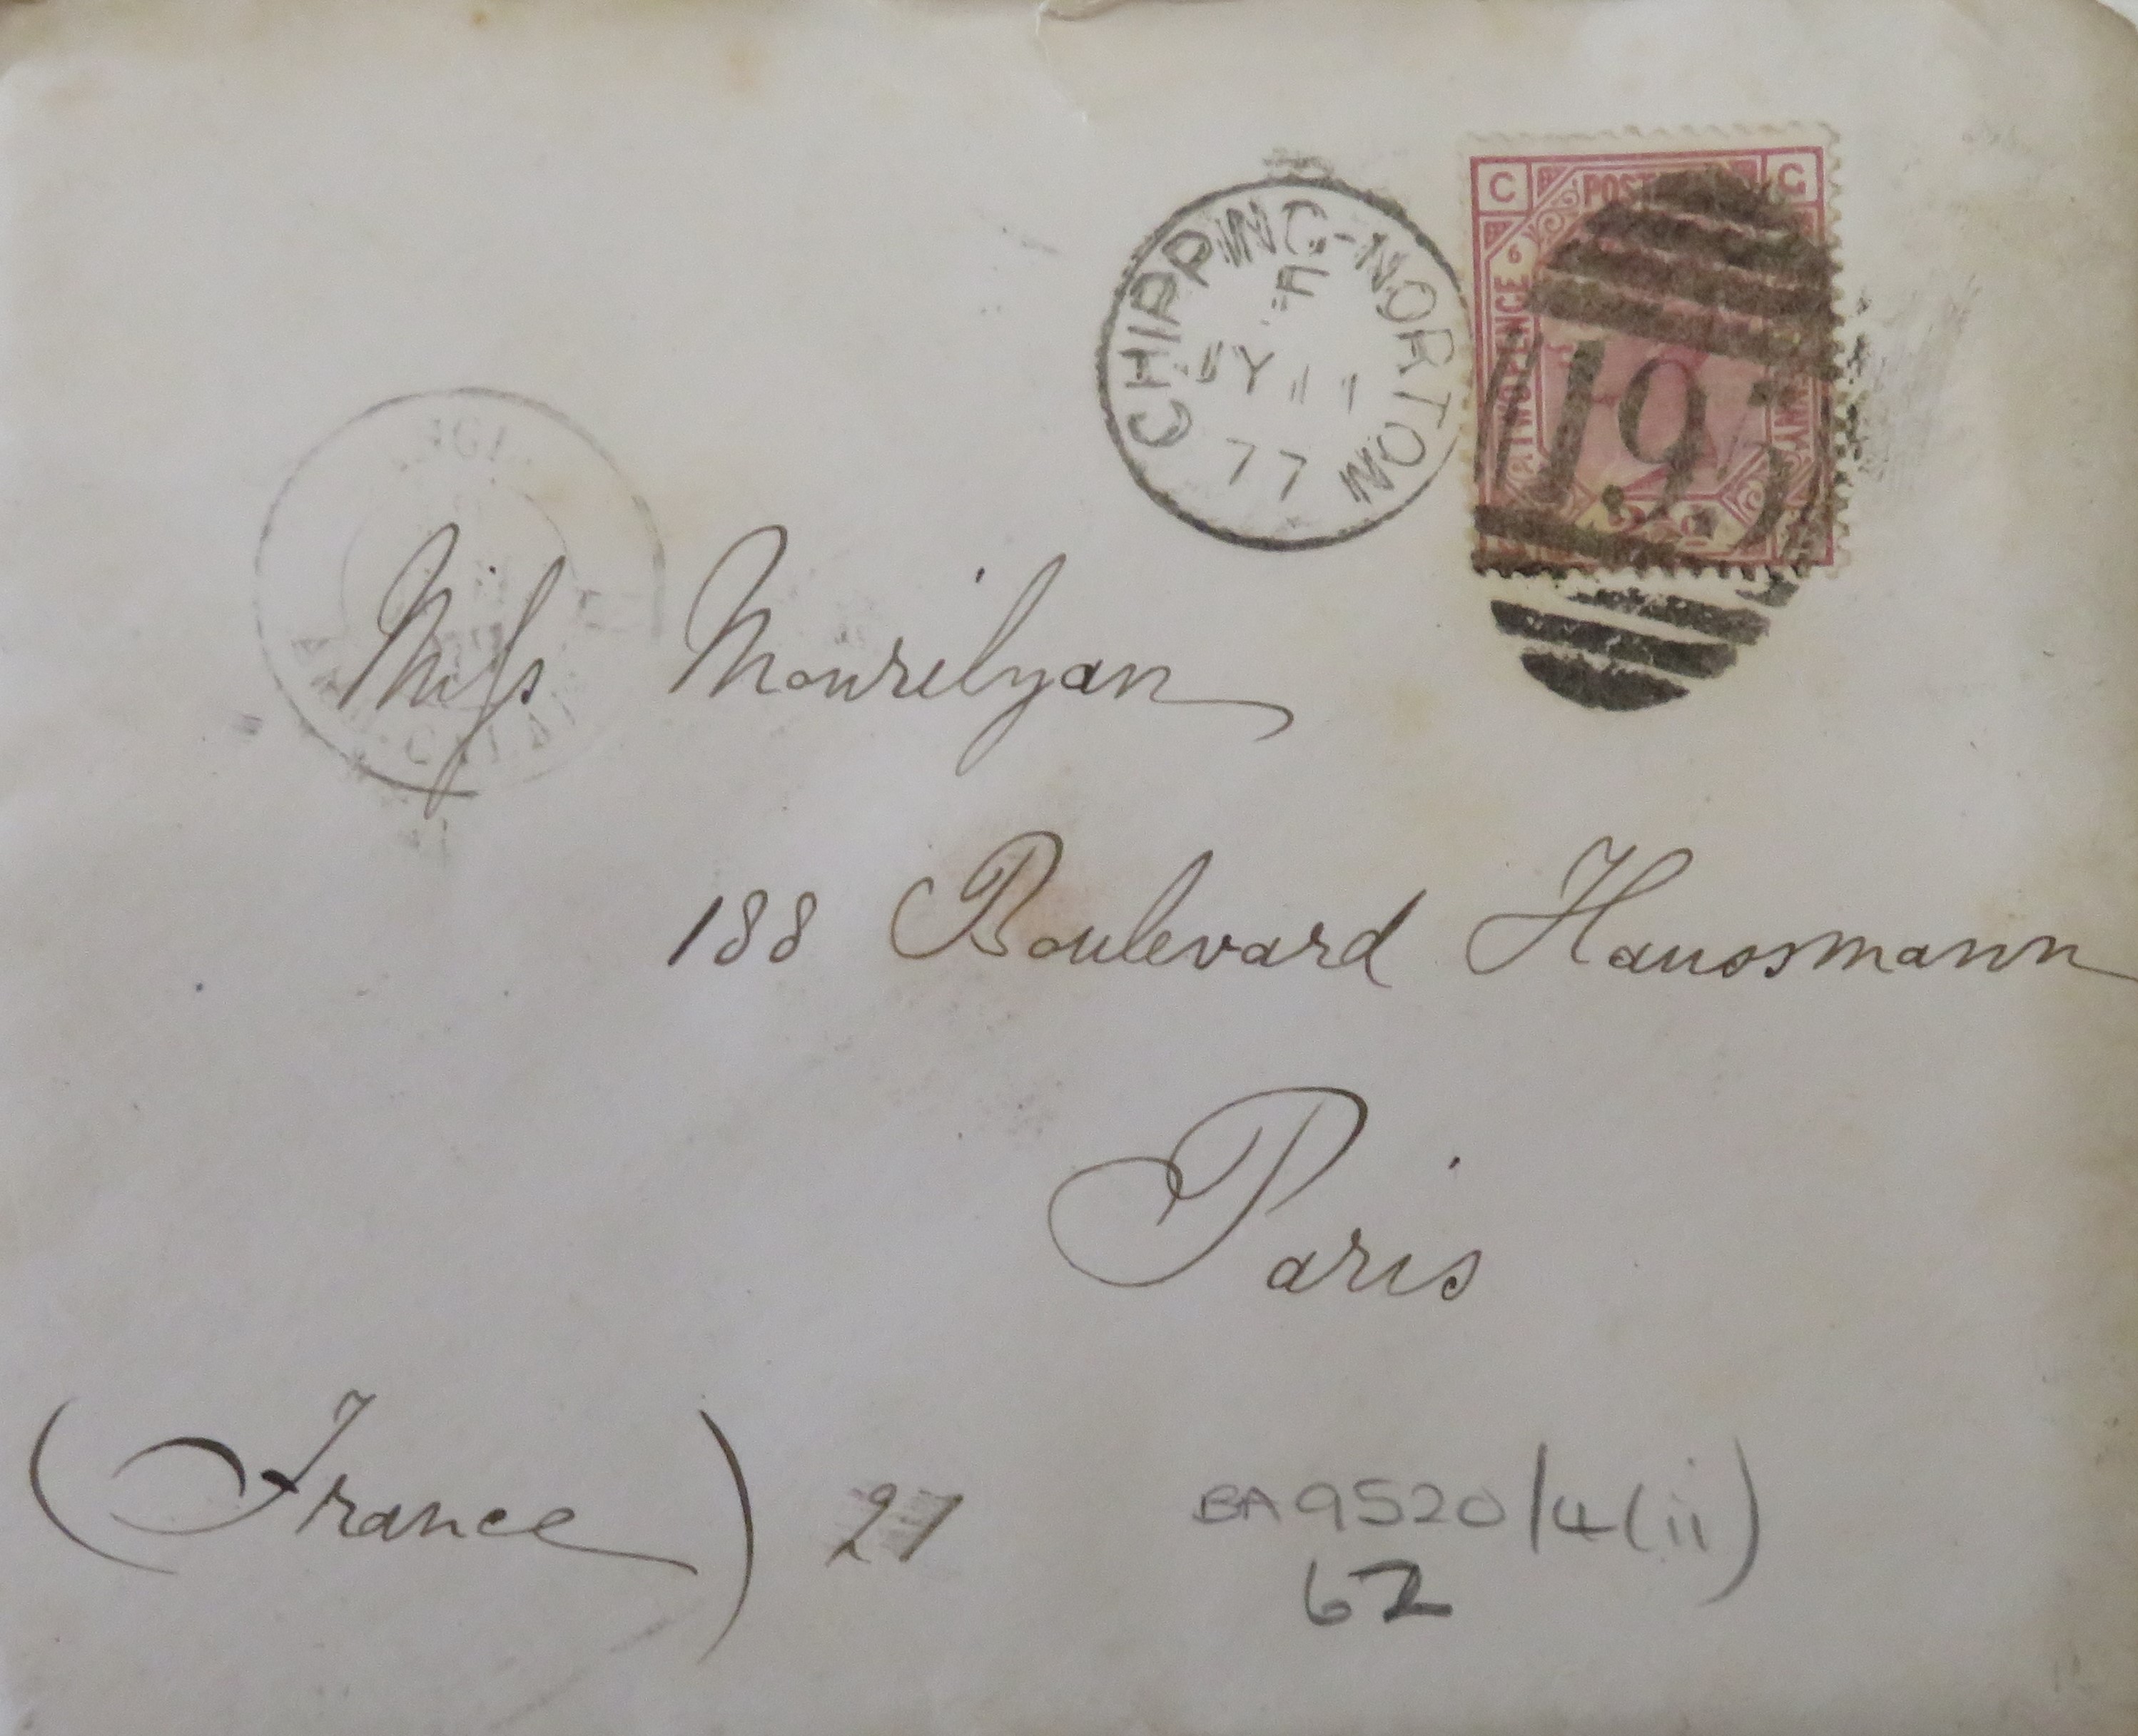 CHIPPING-NORTON
77
C POST G
6
TWO PENCE
193
Miss Mourilyan
188 Boulevard Haussmann
Paris
(France) 27
BA9520/4(ii)
62